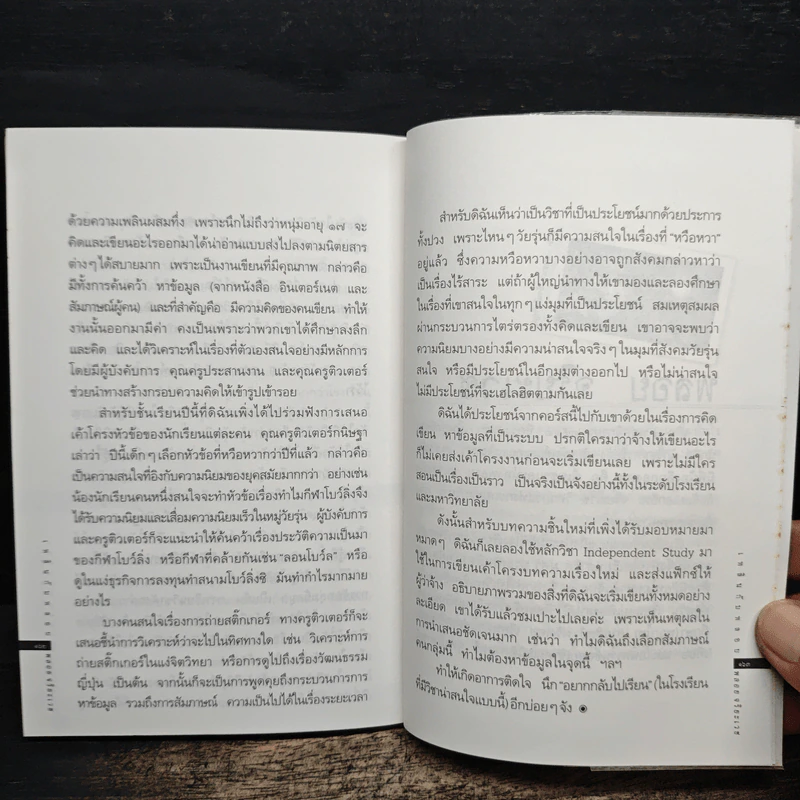 ด้วยความเพลินผสมทึ่ง เพราะนึกไม่ถึงว่าหนุ่มอายุ ๑๗ จะ
คิดและเขียนอะไรออกมาได้น่าอ่านแบบส่งไปลงตามนิตยสาร
ต่างๆได้สบายมาก เพราะเป็นงานเขียนที่มีคุณภาพ กล่าวคือ
มีทั้งการค้นคว้า หาข้อมูล (จากหนังสือ อินเตอร์เนต และ
สัมภาษณ์ผู้คน) และที่สำคัญคือ มีความคิดของคนเขียน ทำให้
งานนั้นออกมามีค่า คงเป็นเพราะว่าพวกเขาได้ศึกษาลงลึก
และคิด และได้วิเคราะห์ในเรื่องที่ตัวเองสนใจอย่างมีหลักการ
โดยมีผู้บังคับการ คุณครูประสานงาน และคุณครูติวเตอร์
ช่วยนำทางสร้างกรอบความคิดให้เข้ารูปเข้ารอย
สำหรับชั้นเรียนปีนี้ที่ดิฉันเพิ่งได้ไปร่วมฟังการเสนอ
เค้าโครงหัวข้อของนักเรียนแต่ละคน คุณครูติวเตอร์กนิษฐา
เล่าว่า ปีนี้เด็กๆเลือกหัวข้อที่หวือหวากว่าปีที่แล้ว กล่าวคือ
เป็นความสนใจที่อิงกับความนิยมของยุคสมัยมากกว่า อย่างเช่น
น้องนักเรียนคนหนึ่งสนใจจะทำหัวข้อเรื่องทำไมกีฬาโบว์ลิ่งจึง
ได้รับความนิยมและเสื่อมความนิยมเร็วในหมู่วัยรุ่น ผู้บังคับการ
และครูติวเตอร์ก็จะแนะนำให้ค้นคว้าเรื่องประวัติความเป็นมา
ของกีฬาโบว์ลิ่ง หรือกีฬาที่คล้ายกันเช่น"ลอนโบว์ล" หรือ
ดูในแง่ธุรกิจการลงทุนทำสนามโบว์ลิ่งซิ มันทำกำไรมากมาย
อย่างไร
บางคนสนใจเรื่องการถ่ายสติ๊กเกอร์ ทางครูติวเตอร์ก็จะ
เสนอชี้นำการวิเคราะห์ว่าจะไปในทิศทางใด เช่น วิเคราะห์การ
ถ่ายสติ๊กเกอร์ในแง่จิตวิทยา หรือการดูไปถึงเรื่องวัฒนธรรม
ญี่ปุ่น เป็นต้น จากนั้นก็จะเป็นการพูดคุยถึงกระบวนการการ
หาข้อมูล รวมถึงการสัมภาษณ์ ความเป็นไปได้ในเรื่องระยะเวลา
สำหรับดิฉันเห็นว่าเป็นวิชาที่เป็นประโยชน์มากด้วยประการ
ทั้งปวง เพราะไหนๆวัยรุ่นก็มีความสนใจในเรื่องที่ "หวือหวา"
อยู่แล้ว ซึ่งความหวือหวาบางอย่างอาจถูกสังคมกล่าวหาว่า
เป็นเรื่องไร้สาระ แต่ถ้าผู้ใหญ่นำทางให้เขามองและลองศึกษา
ในเรื่องที่เขาสนใจในทุกๆแง่มุมที่เป็นประโยชน์ สมเหตุสมผล
ผ่านกระบวนการไตร่ตรองทั้งคิดและเขียน เขาอาจจะพบว่า
ความนิยมบางอย่างมีความน่าสนใจจริงๆในมุมที่สังคมวัยรุ่น
สนใจ หรือมีประโยชน์ในอีกมุมต่างออกไป หรือไม่น่าสนใจ
ไม่มีประโยชน์ที่จะเฮโลฮิตตามกันเลย
ดิฉันได้ประโยชน์จากคอร์สนี้ไปกับเขาด้วยในเรื่องการคิด
เขียน หาข้อมูลที่เป็นระบบ ปรกติใครมาว่าจ้างให้เขียนอะไร
ก็ไม่เคยส่งเค้าโครงงานก่อนจะเริ่มเขียนเลย เพราะไม่มีใคร
สอนเป็นเรื่องเป็นราว เป็นจริงเป็นจังอย่างนี้ทั้งในระดับโรงเรียน
และมหาวิทยาลัย
ดังนั้นสำหรับบทความชิ้นใหม่ที่เพิ่งได้รับมอบหมายมา
หมาดๆ ดิฉันก็เลยลองใช้หลักวิชา Independent Study มา
ใช้ในการเขียนเค้าโครงบทความเรื่องใหม่ และส่งแฟ็กซ์ให้
ผู้ว่าจ้าง อธิบายภาพรวมของสิ่งที่ดิฉันจะเริ่มเขียนทั้งหมดอย่าง
ละเอียด เขาได้รับแล้วชมเปาะไปเลยค่ะ เพราะเห็นเหตุผลใน
การนำเสนอชัดเจนมาก เช่นว่า ทำไมดิฉันถึงเลือกสัมภาษณ์
คนกลุ่มนี้ ทำไมต้องหาข้อมูลในจุดนี้ ฯลฯ
ทำให้เกิดอาการติดใจ นึก "อยากกลับไปเรียน" (ในโรงเรียน
ที่มีวิชาน่าสนใจแบบนี้) อีกบ่อยๆจัง